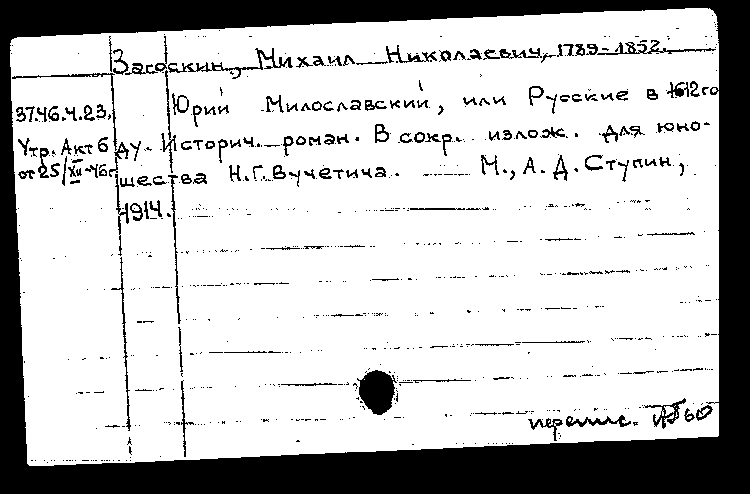 Загоскин, Михаил Николаевич, 1789-1852.
37.46.4.23.
Юрий Милославский, или Русские в 1612 го-
Утр. Акт 6
ду. Историч. роман. В сокр. излож. для юно-
от 25/XII-46г.
шества Н.Г.Вучетича. — М., А.Д.Ступин,
1914.
перепис.